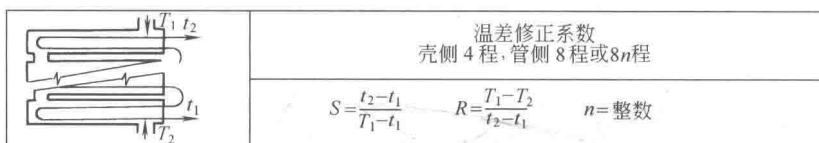 T₁ t₂
t₁
T₂
温差修正系数
壳侧 4 程,管侧 8 程或8n程
S=(t₂−t₁)/(T₁−t₁) R=(T₁−T₂)/(t₂−t₁) n=整数